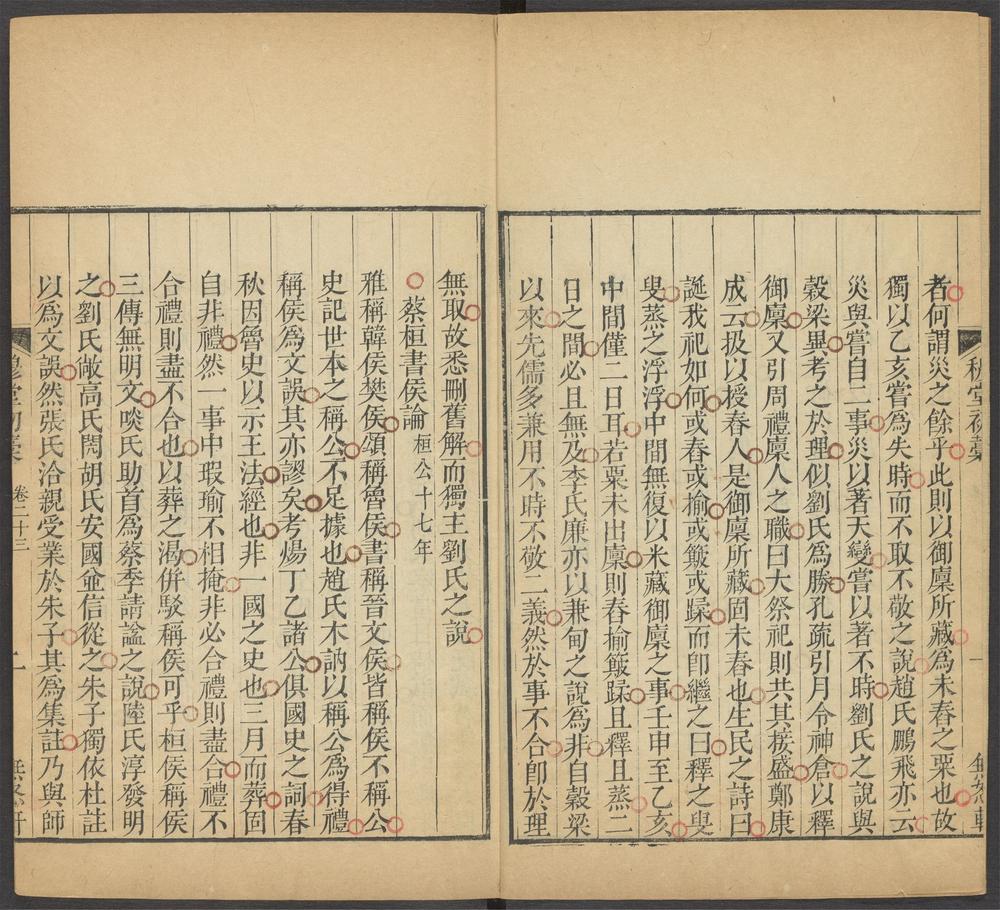 者何謂災之餘乎此則以御廩所藏爲未舂之粟也故
獨以乙亥嘗爲失時而不取不敬之說趙氏鵬飛亦云
災與嘗自二事災以著天變嘗以著不時劉氏之說與
穀梁異考之於理似劉氏爲勝孔疏引月令神倉以釋
御廩又引周禮廩人之職曰大祭祀則共其接盛鄭康
成云扱以授舂人是御廩所藏固未舂也生民之詩曰
誕我祀如何或舂或揄或簸或蹂而卽繼之曰釋之叟
叟蒸之浮浮中間無復以米藏御廩之事壬申至乙亥
中間僅二日耳若粟未出廩則舂揄簸蹂且釋且蒸二
日之間必且無及李氏廉亦以兼甸之說爲非自穀梁
以來先儒多兼用不時不敬二義然於事不合卽於理
無取故悉刪舊解而獨主劉氏之說
蔡桓書侯論桓公十七年
雅稱韓侯樊侯頌稱魯侯書稱晉文侯皆稱侯不稱公
史記世本之稱公不足據也趙氏木訥以稱公爲得禮
稱侯爲文誤其亦謬矣考煬丁乙諸公俱國史之詞春
秋因魯史以示王法經也非一國之史也三月而葬固
自非禮然一事中瑕瑜不相掩非必合禮則盡合禮不
合禮則盡不合也以葬之渴併駁稱侯可乎桓侯稱侯
三傳無明文啖氏助首爲蔡季請諡之說陸氏淳發明
之劉氏敞高氏閌胡氏安國並信從之朱子獨依杜註
以爲文誤然張氏洽親受業於朱子其爲集註乃與師
穆堂初稾
卷二十三
二